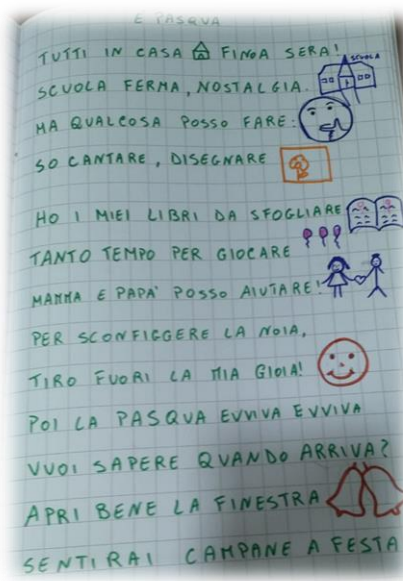 E PASQUA
TUTTI IN CASA FINOA SERA!
SCUOLA FERMA, NOSTALGIA.
SCUOLA
MA QUALCOSA POSSO FARE:
SO CANTARE, DISEGNARE
HO I MIEI LIBRI DA SFOGLIARE
TANTO TEMPO PER GIOCARE
MAMMA E PAPA' POSSO AIUTARE!
PER SCONFIGGERE LA NOIA,
TIRO FUORI LA MIA GIOIA!
POI LA PASQUA EVVIVA EVVIVA
VUOI SAPERE QUANDO ARRIVA?
APRI BENE LA FINESTRA
SENTIRAI CAMPANE A FESTA